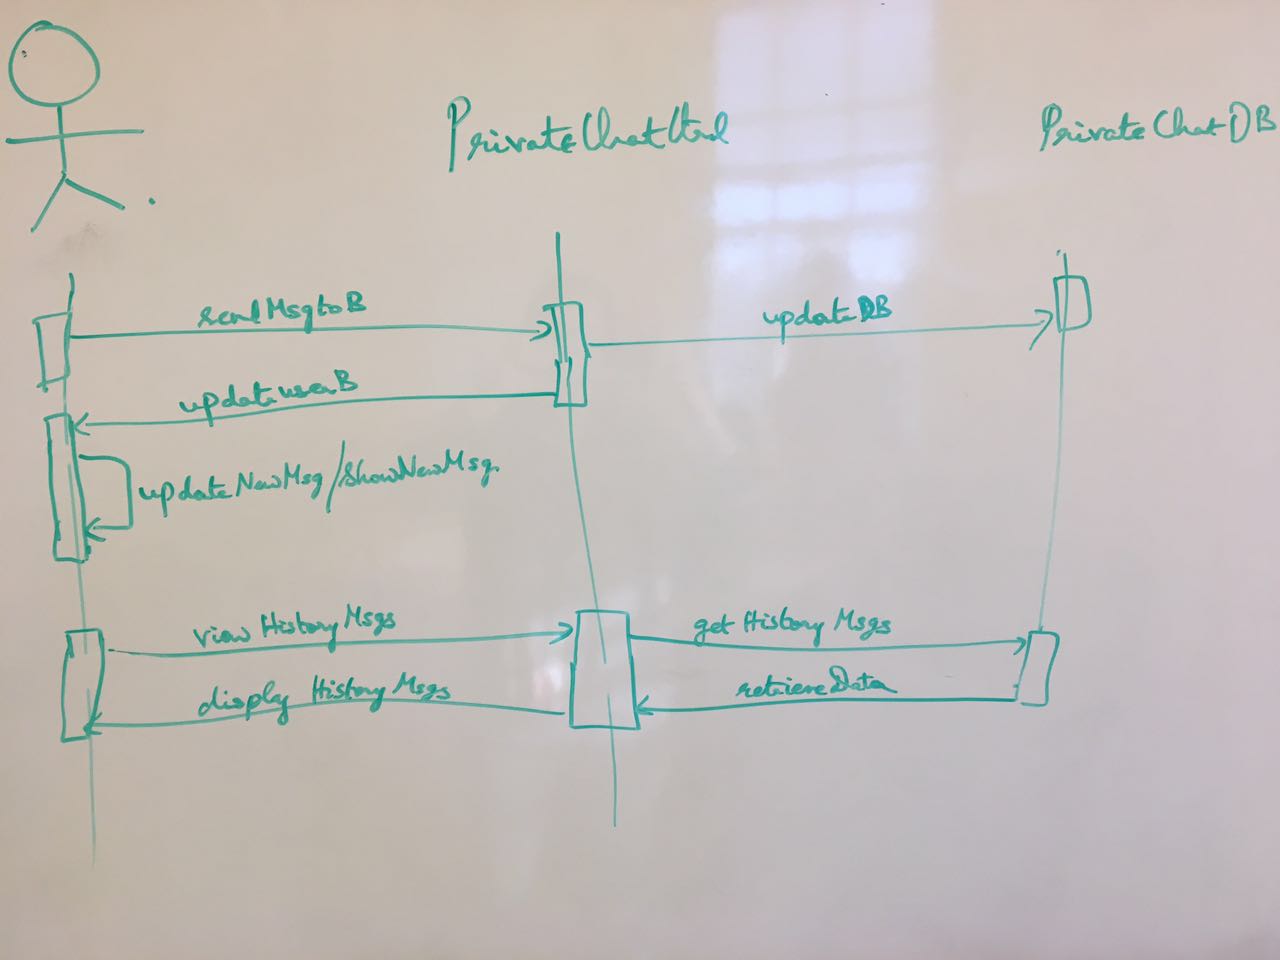 PrivateChatCtrl
PrivateChatDB
sendMsgtoB
updateDB
updateuserB
updateNewMsg/ShowNewMsg.
view HistoryMsgs
get HistoryMsgs
display HistoryMsgs
retrieveData